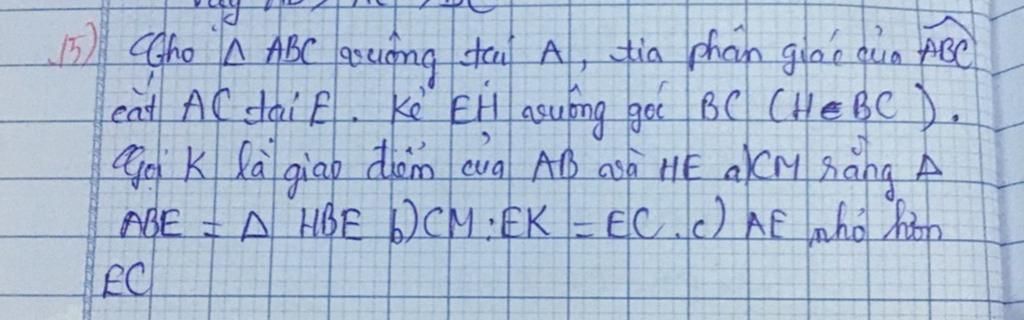 15) Cho Δ ABC vuông tại A, tia phân giác của ABC
cắt AC tại E. Kẻ EH vuông góc BC (H∈BC).
Gọi K là giao điểm của AB và HE a)CM rằng Δ
ABE = Δ HBE b)CM:EK = EC. c) AE nhỏ hơn
EC